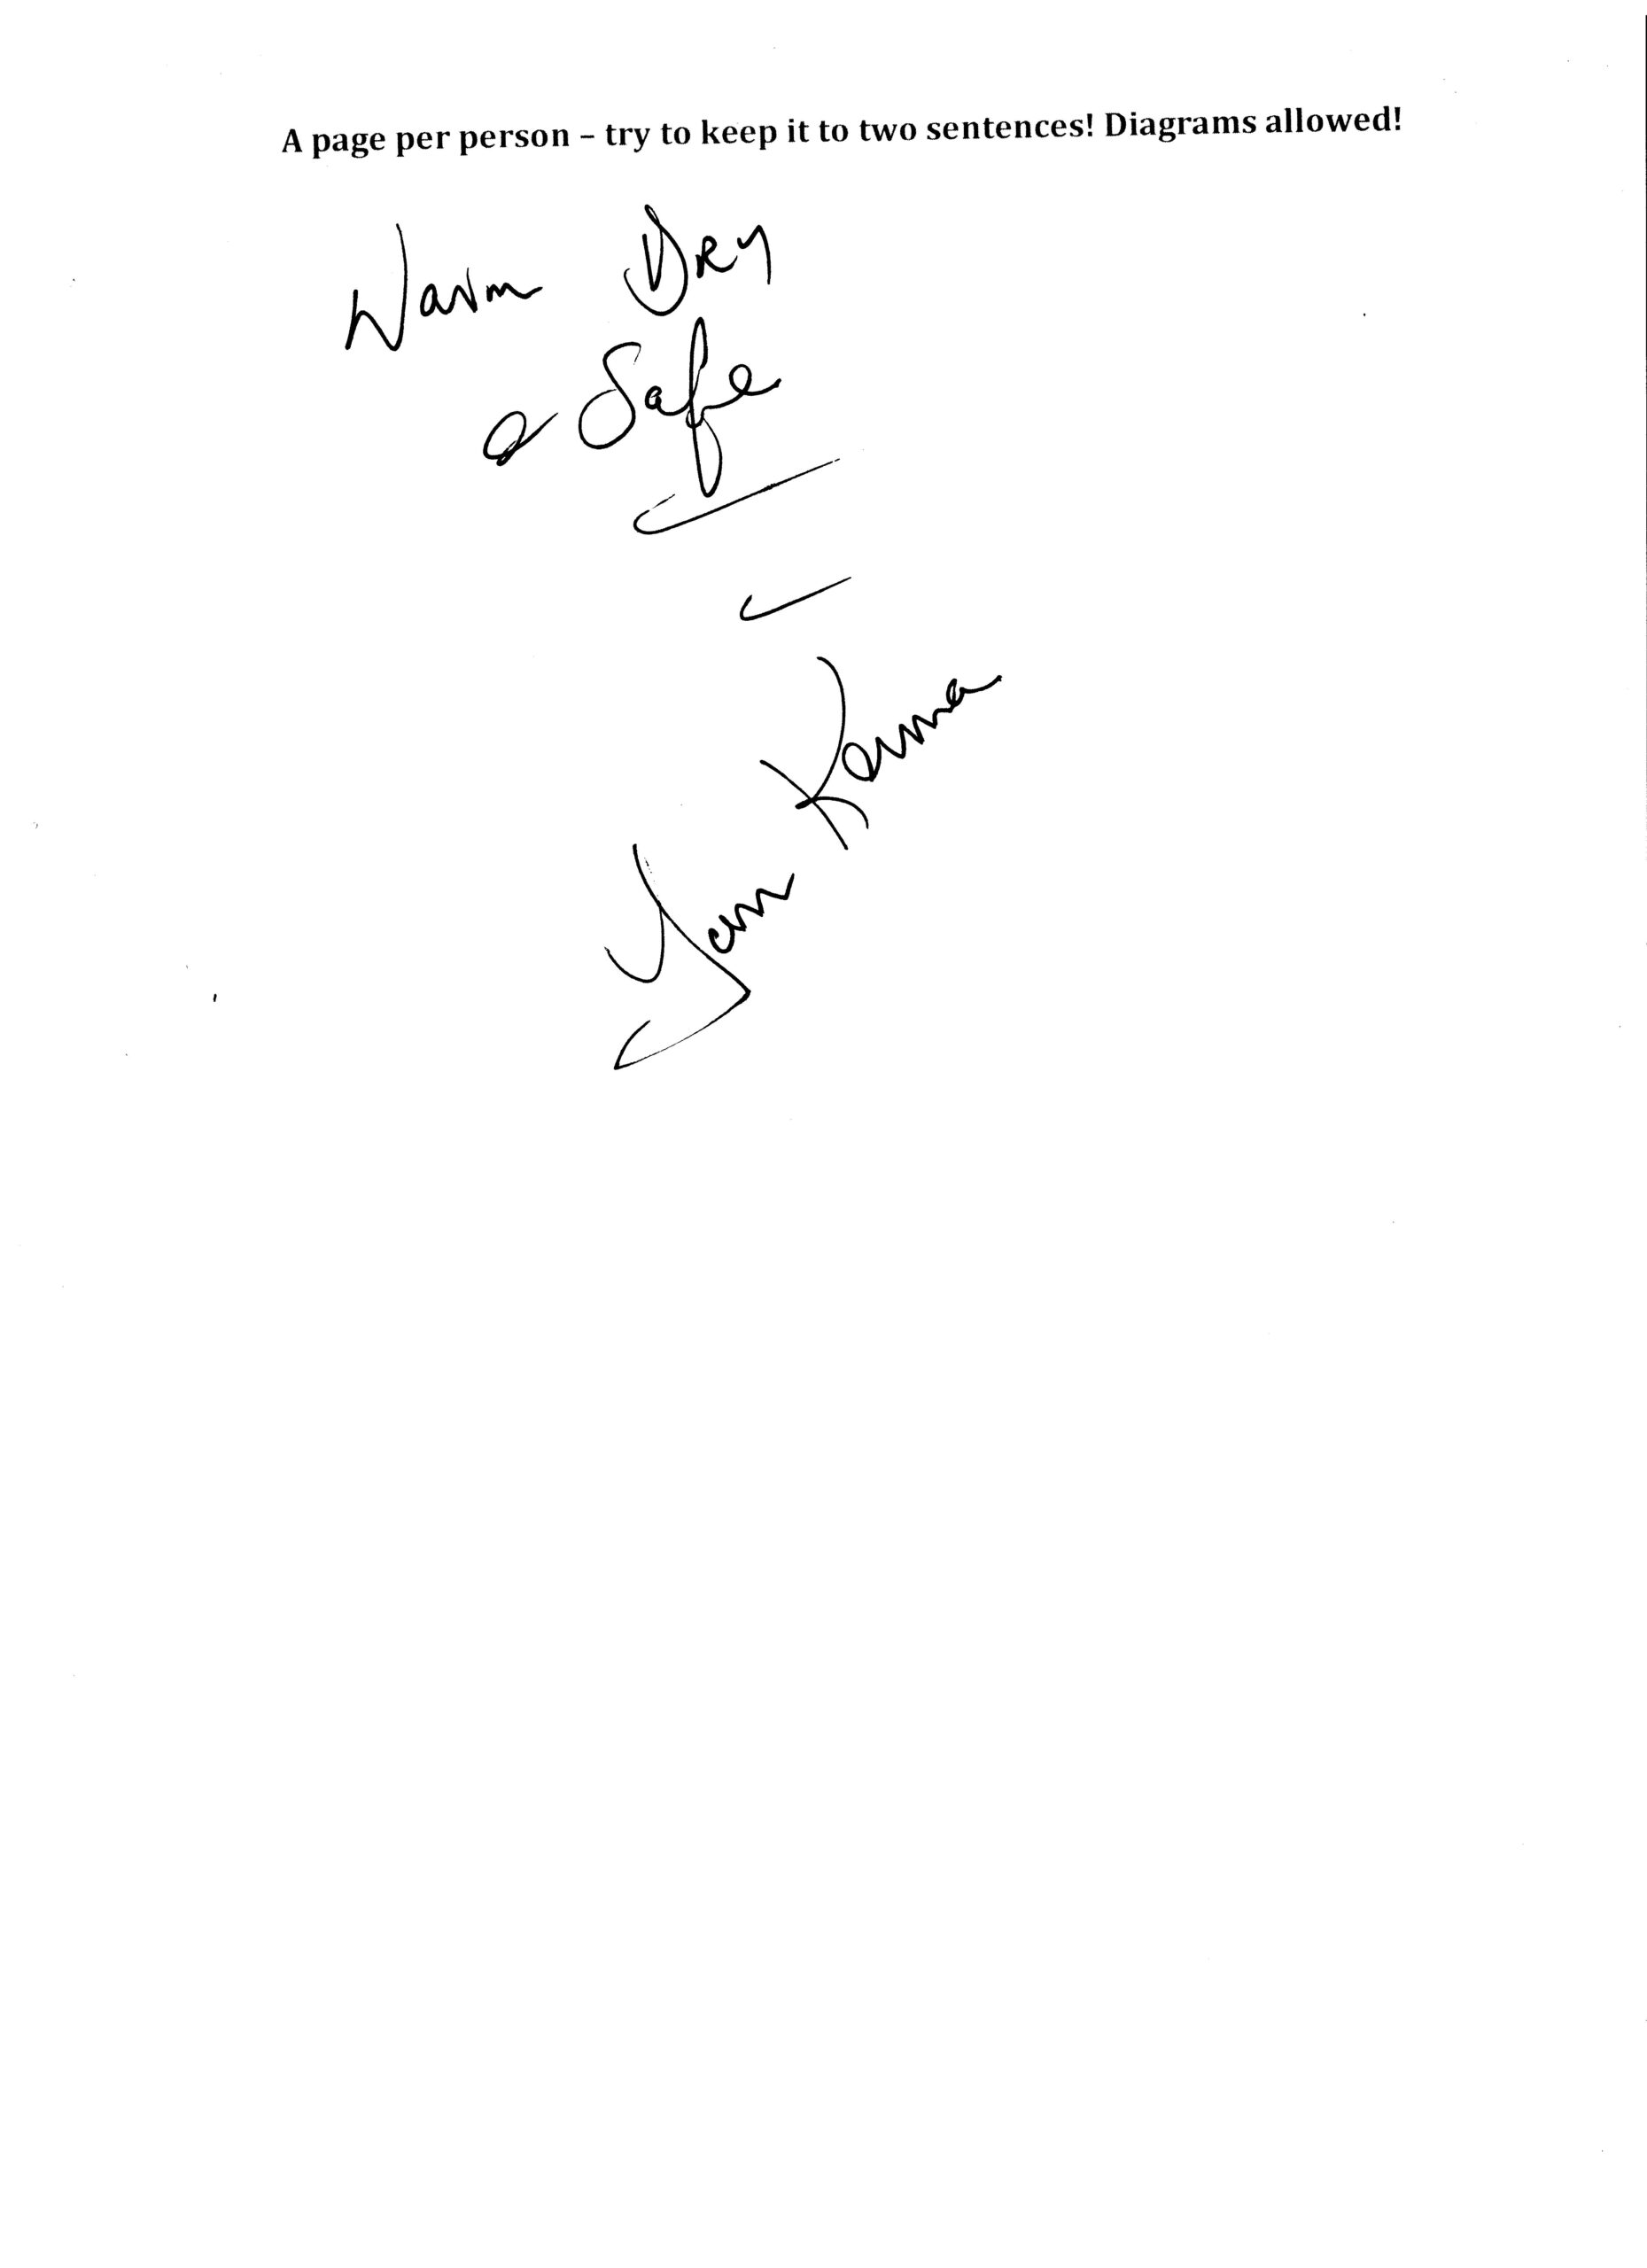 A page per person – try to keep it to two sentences! Diagrams allowed!
Warm Dry
& Safe